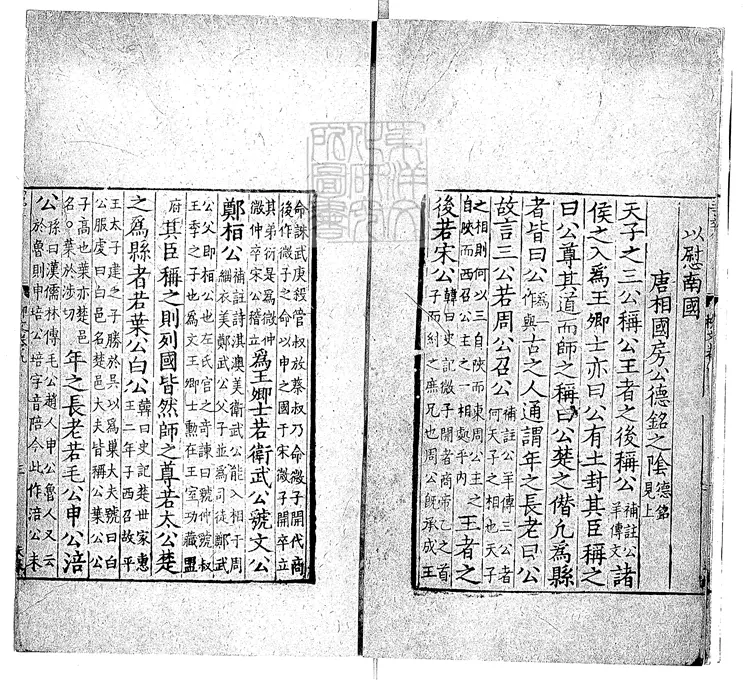 以慰南國
唐相國房公德銘之陰德銘見上
天子之三公稱公王者之後稱公補註公羊傳文諸
侯之入爲王卿士亦曰公有土封其臣稱之
曰公尊其道而師之稱曰公楚之僭凡爲縣
者皆曰公爲作與古之人通謂年之長老曰公
故言三公若周公召公補註公羊傳三公者何天子之相也天子
之相則何以三自陝而東周公主之自陝而西召公主之一相處乎內王者之
後若宋公韓曰史記微子開者商帝乙之首子而紂之庶兄也周公旣承成王
命誅武庚殺管叔放蔡叔乃命微子開代商後作微子之命以申之國于宋微子開卒立
其弟衍是爲微仲微仲卒宋公稽立爲王卿士若衛武公虢文公
鄭桓公補註詩淇澳美衛武公能入相于周緇衣美鄭武公父子並爲司徒鄭武
公父即桓公也左氏宮之奇諫曰虢仲虢叔王季之子也爲文王卿士勳在王室功藏盟
府其臣稱之則列國皆然師之尊若太公楚
之爲縣者若葉公白公韓曰史記楚世家惠王二年子西召故平
王太子建之子勝於吳以爲巢大夫號曰白公服虔曰白邑名楚邑大夫皆稱公葉公
子高也葉亦楚邑名〇葉於涉切年之長老若毛公申公涪
公孫曰漢儒林傳毛公趙人申公魯人又云於魯則申培公培字音陪今此作涪公未